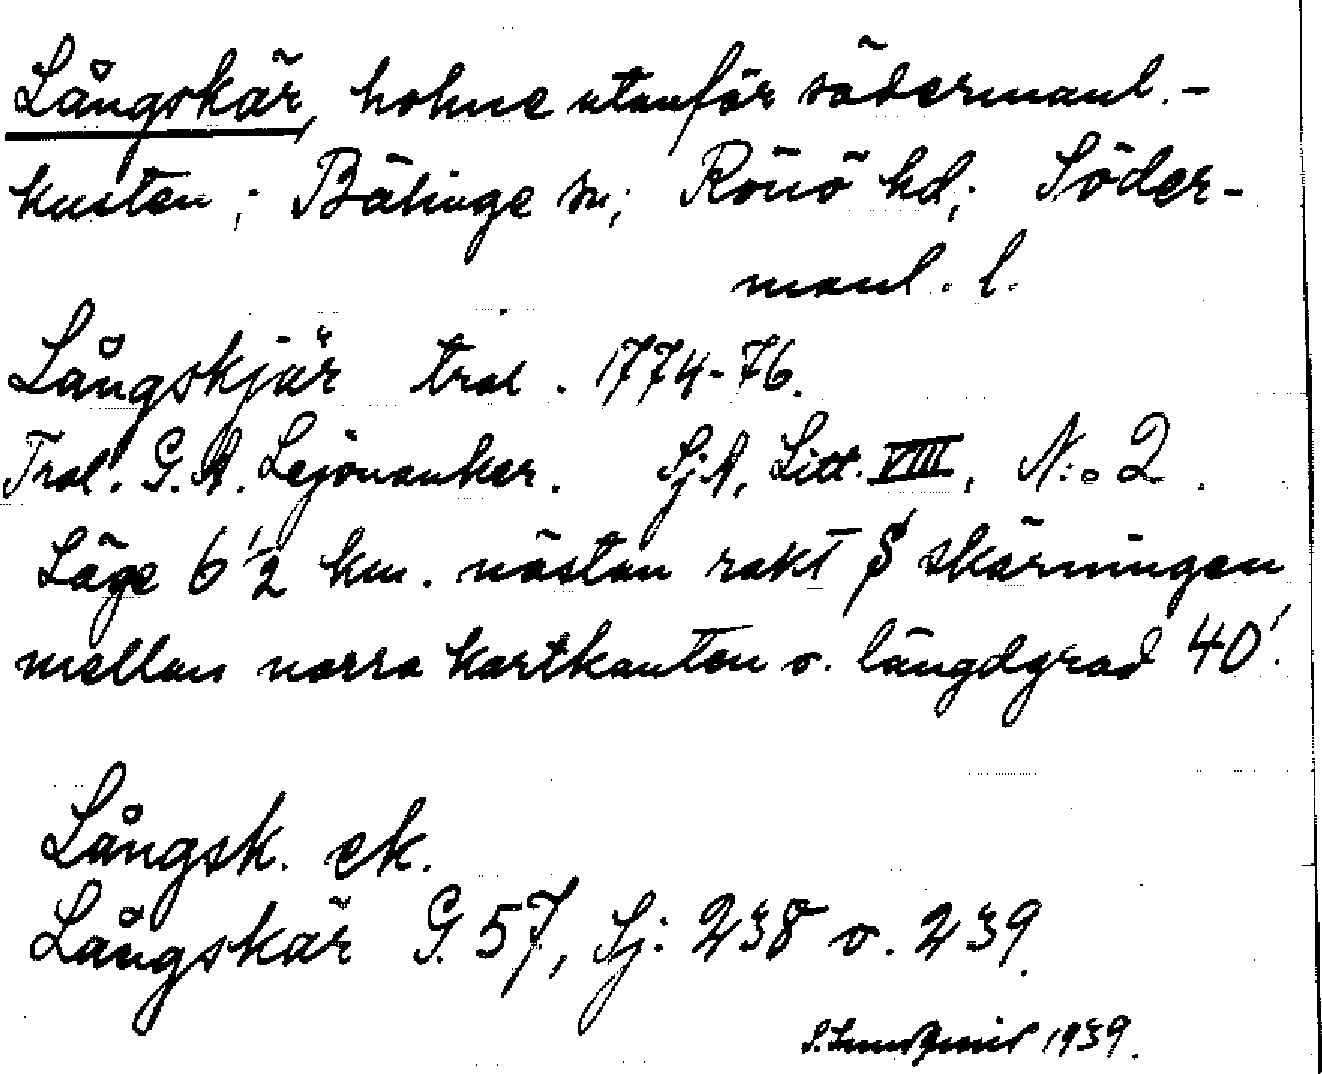 Långskär, holme utanför södermanl.-
kusten; Bälinge sn; Rönö hd; Söder-
manl. l.
Långskjär trol. 1774-76.
Trol. G. A. Lejonanker. SjA, Litt. VIII, N:o 2.
Läge 6 1/2 km. nästan rakt S skärningen
mellan norra kartkanten o. längdgrad 40'.
Långsk. ek.
Långskär G. 57, Sj: 238 o. 239.
1939.